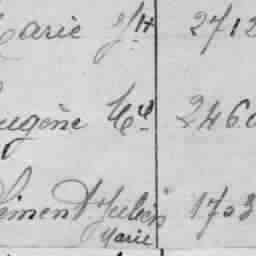 Marie Jh 2712
Eugène Me 2460
Clément Julien 1703
Marie